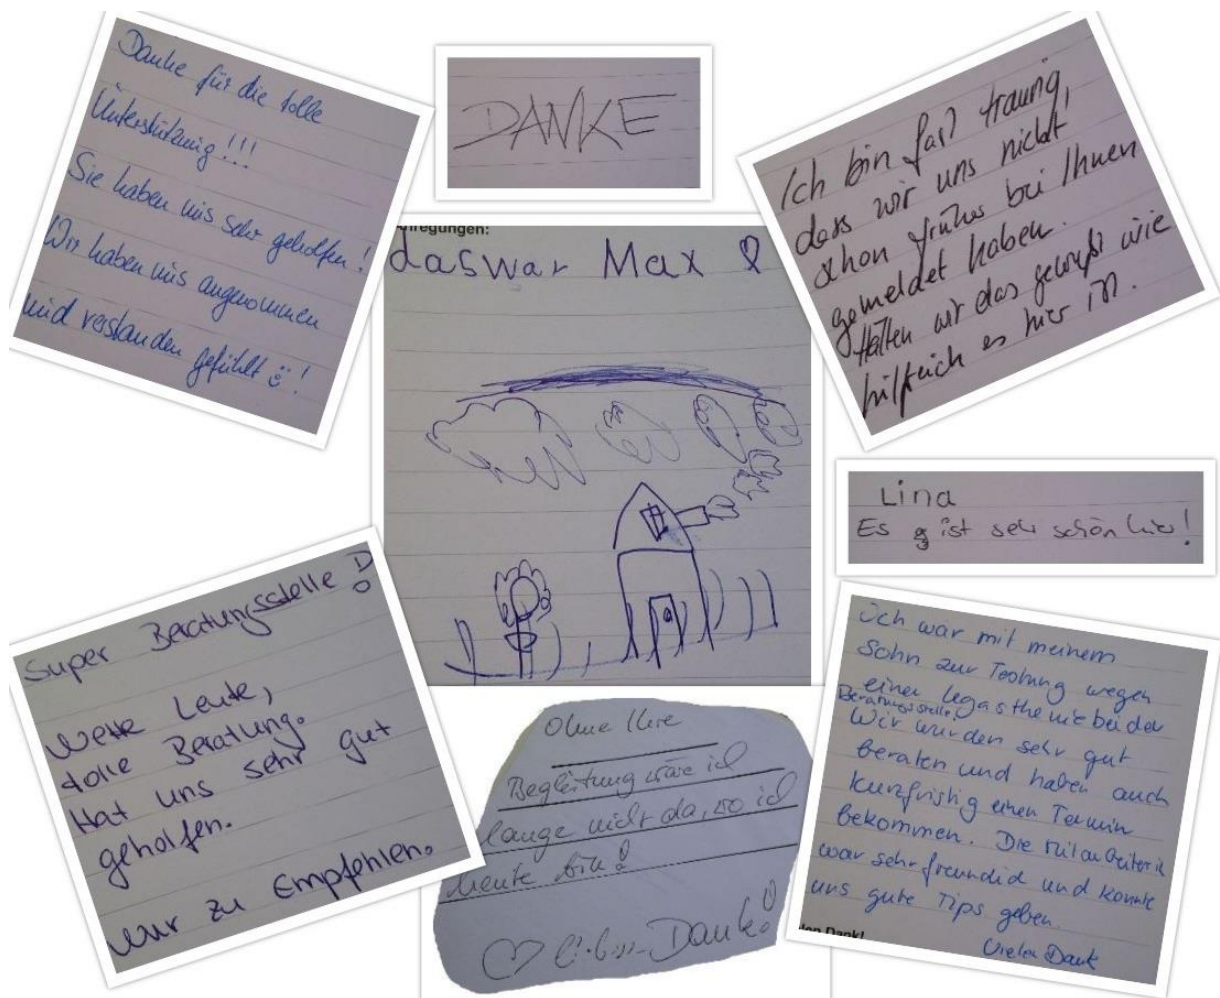 Danke für die tolle
Unterstützung!!!
Sie haben uns sehr geholfen!
Wir haben uns angenommen
und verstanden gefühlt ü!
DANKE
Ich bin fast traurig,
dass wir uns nicht
schon früher bei Ihnen
gemeldet haben.
Hätten wir das gewußt wie
hilfreich es hier ist.
nregungen:
daswar Max !
Lina
Es ist sehr schön hier!
Super Beratungsstelle !
Nette Leute,
tolle Beratung.
Hat uns sehr gut
geholfen.
Nur zu Empfehlen.
Ohne Ihre
Begleitung wäre ich
lange nicht da, wo ich
heute bin!
Dank!
Ich war mit meinem
Sohn zur Testung wegen
einer Legasthenie bei der
Beratungsstelle.
Wir wurden sehr gut
beraten und haben auch
kurzfristig einen Termin
bekommen. Die Mitarbeiterin
war sehr freundlich und konnte
uns gute Tips geben.
len Dank!
Vielen Dank